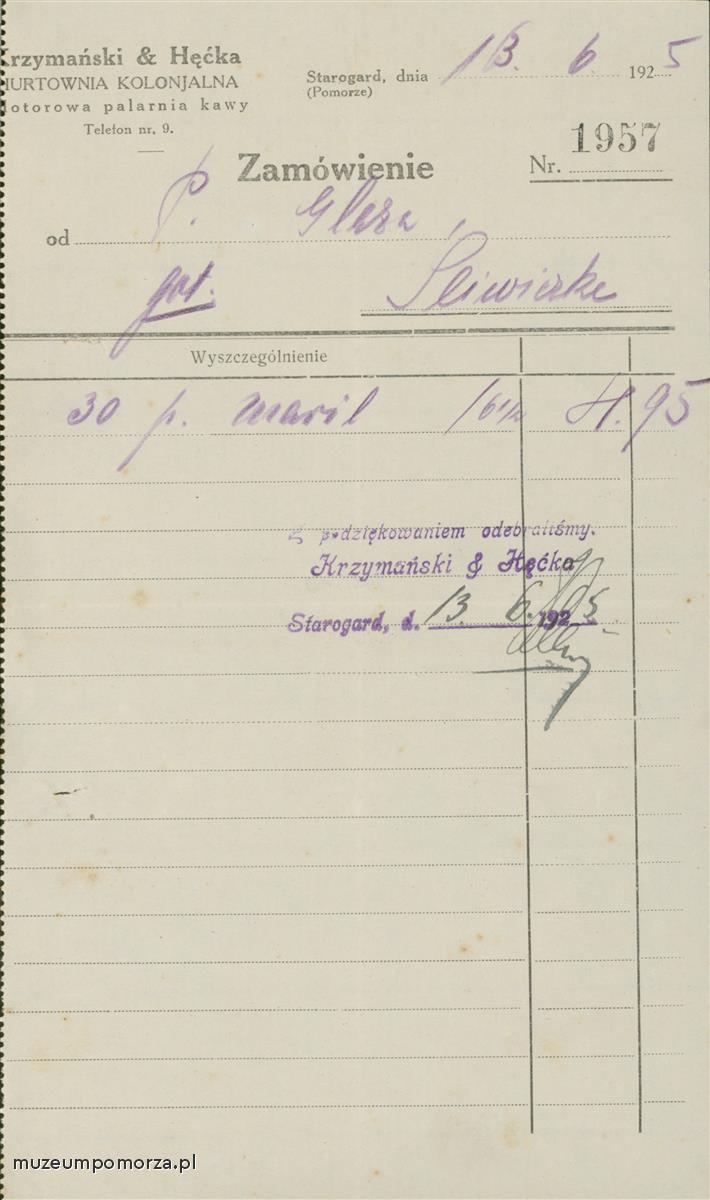 Krzymański & Hęćka
HURTOWNIA KOLONJALNA
Motorowa palarnia kawy
Telefon nr. 9.
Starogard, dnia 13. 6. 1925
(Pomorze)
Zamówienie
Nr. 1957
od P. Glaza,
got. Śliwiczke
Wyszczególnienie
30 p. 16½ 4.95
Z podziękowaniem odebraliśmy.
Krzymański & Hęćka
Starogard, d. 13 6. 1925.
muzeumpomorza.pl